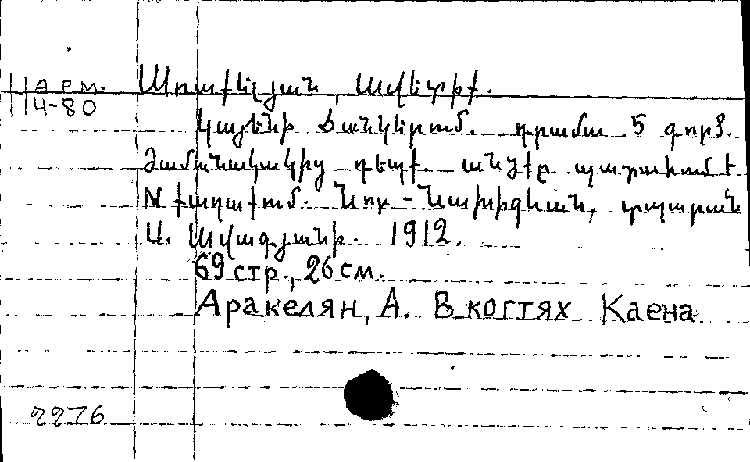 На арм.
Առաքելյան, Ավետիք.
Ч-80
Կայենի ճանկերում. դրամա 5 գործ.
Ժամանակակից դեպք. անցքը պատահում է
N քաղաքում. Նոր-Նախիջևան, տպարան
Ս. Ավագյանի. 1912.
69 стр., 26 см.
Аракелян, А. В когтях Каена
2276